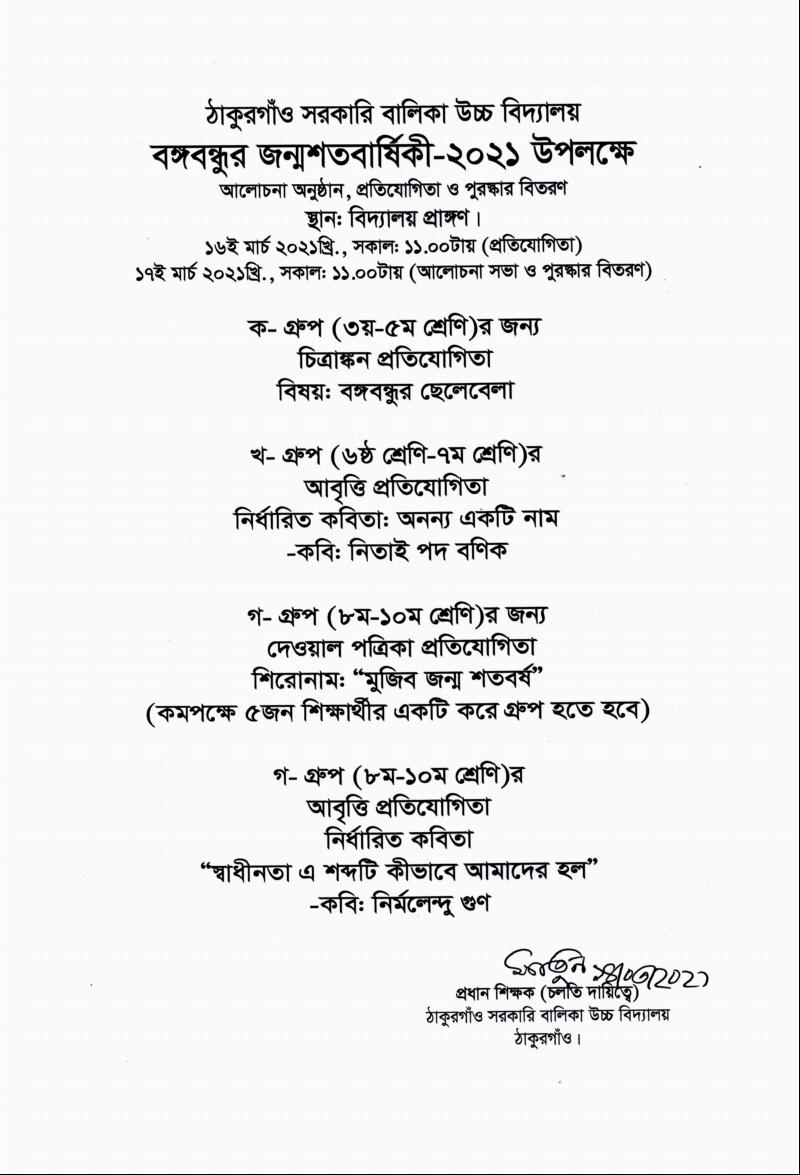 ঠাকুরগাঁও সরকারি বালিকা উচ্চ বিদ্যালয়
বঙ্গবন্ধুর জন্মশতবার্ষিকী-২০২১ উপলক্ষে
আলোচনা অনুষ্ঠান, প্রতিযোগিতা ও পুরস্কার বিতরণ
স্থান: বিদ্যালয় প্রাঙ্গণ।
১৬ই মার্চ ২০২১খ্রি., সকাল: ১১.০০টায় (প্রতিযোগিতা)
১৭ই মার্চ ২০২১খ্রি., সকাল: ১১.০০টায় (আলোচনা সভা ও পুরস্কার বিতরণ)
ক- গ্রুপ (৩য়-৫ম শ্রেণি)র জন্য
চিত্রাঙ্কন প্রতিযোগিতা
বিষয়: বঙ্গবন্ধুর ছেলেবেলা
খ- গ্রুপ (৬ষ্ঠ শ্রেণি-৭ম শ্রেণি)র
আবৃত্তি প্রতিযোগিতা
নির্ধারিত কবিতা: অনন্য একটি নাম
-কবি: নিতাই পদ বণিক
গ- গ্রুপ (৮ম-১০ম শ্রেণি)র জন্য
দেওয়াল পত্রিকা প্রতিযোগিতা
শিরোনাম: “মুজিব জন্ম শতবর্ষ”
(কমপক্ষে ৫জন শিক্ষার্থীর একটি করে গ্রুপ হতে হবে)
গ- গ্রুপ (৮ম-১০ম শ্রেণি)র
আবৃত্তি প্রতিযোগিতা
নির্ধারিত কবিতা
“স্বাধীনতা এ শব্দটি কীভাবে আমাদের হল”
-কবি: নির্মলেন্দু গুণ
প্রধান শিক্ষক (চলতি দায়িত্বে)
ঠাকুরগাঁও সরকারি বালিকা উচ্চ বিদ্যালয়
ঠাকুরগাঁও।